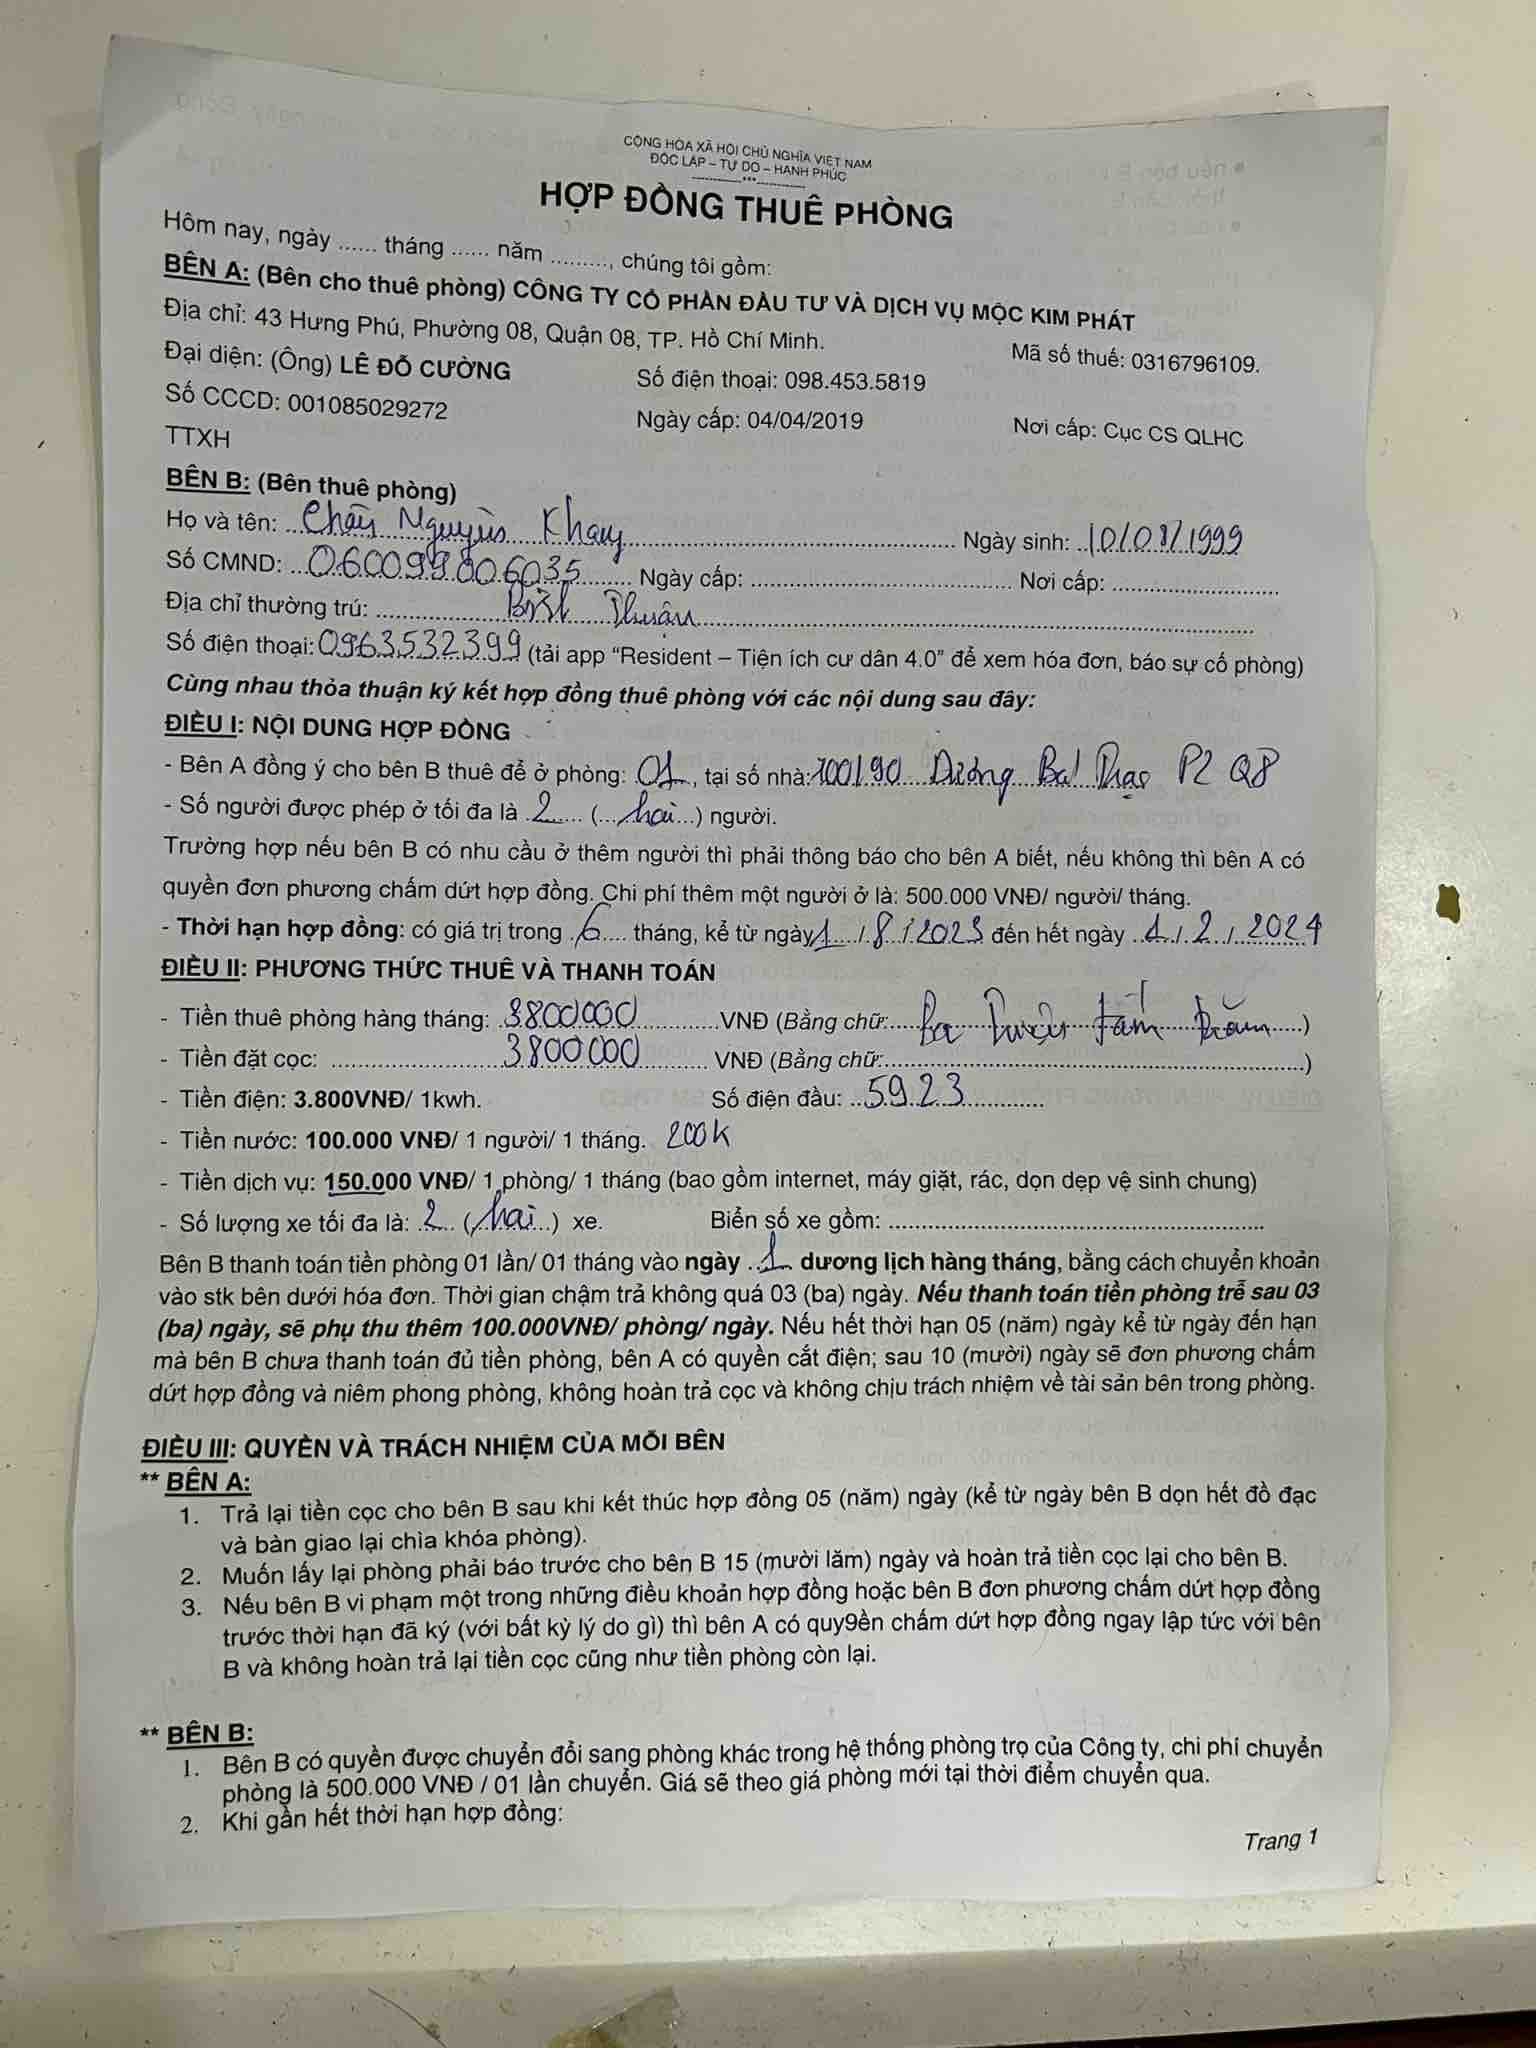 CỘNG HÒA XÃ HỘI CHỦ NGHĨA VIỆT NAM
ĐỘC LẬP – TỰ DO – HẠNH PHÚC
------------***------------
HỢP ĐỒNG THUÊ PHÒNG
Hôm nay, ngày ...... tháng ...... năm ........., chúng tôi gồm:
BÊN A: (Bên cho thuê phòng) CÔNG TY CỔ PHẦN ĐẦU TƯ VÀ DỊCH VỤ MỘC KIM PHÁT
Địa chỉ: 43 Hưng Phú, Phường 08, Quận 08, TP. Hồ Chí Minh. Mã số thuế: 0316796109.
Đại diện: (Ông) LÊ ĐỖ CƯỜNG Số điện thoại: 098.453.5819
Số CCCD: 001085029272 Ngày cấp: 04/04/2019 Nơi cấp: Cục CS QLHC
TTXH
BÊN B: (Bên thuê phòng)
Họ và tên: Nguyên Khang Ngày sinh: 10/08/1999
Số CMND: 060099006035 Ngày cấp: ........ Nơi cấp: ........
Địa chỉ thường trú: Bình Thuận
Số điện thoại: 0963532399 (tải app “Resident – Tiện ích cư dân 4.0” để xem hóa đơn, báo sự cố phòng)
Cùng nhau thỏa thuận ký kết hợp đồng thuê phòng với các nội dung sau đây:
ĐIỀU I: NỘI DUNG HỢP ĐỒNG
- Bên A đồng ý cho bên B thuê để ở phòng: 01, tại số nhà: 100/90 Dương Bá Trạc P2 Q8
- Số người được phép ở tối đa là 2 (hai) người.
Trường hợp nếu bên B có nhu cầu ở thêm người thì phải thông báo cho bên A biết, nếu không thì bên A có
quyền đơn phương chấm dứt hợp đồng. Chi phí thêm một người ở là: 500.000 VNĐ/ người/ tháng.
- Thời hạn hợp đồng: có giá trị trong 6 tháng, kể từ ngày 1 / 8 / 2023 đến hết ngày 1 / 2 / 2024
ĐIỀU II: PHƯƠNG THỨC THUÊ VÀ THANH TOÁN
- Tiền thuê phòng hàng tháng: 3800000 VNĐ (Bằng chữ: Ba triệu tám trăm)
- Tiền đặt cọc: 3800000 VNĐ (Bằng chữ: ........)
- Tiền điện: 3.800VNĐ/ 1kwh. Số điện đầu: 5923
- Tiền nước: 100.000 VNĐ/ 1 người/ 1 tháng. 200k
- Tiền dịch vụ: 150.000 VNĐ/ 1 phòng/ 1 tháng (bao gồm internet, máy giặt, rác, dọn dẹp vệ sinh chung)
- Số lượng xe tối đa là: 2 (hai) xe. Biển số xe gồm: ........
Bên B thanh toán tiền phòng 01 lần/ 01 tháng vào ngày 1 dương lịch hàng tháng, bằng cách chuyển khoản
vào stk bên dưới hóa đơn. Thời gian chậm trả không quá 03 (ba) ngày. Nếu thanh toán tiền phòng trễ sau 03
(ba) ngày, sẽ phụ thu thêm 100.000VNĐ/ phòng/ ngày. Nếu hết thời hạn 05 (năm) ngày kể từ ngày đến hạn
mà bên B chưa thanh toán đủ tiền phòng, bên A có quyền cắt điện; sau 10 (mười) ngày sẽ đơn phương chấm
dứt hợp đồng và niêm phong phòng, không hoàn trả cọc và không chịu trách nhiệm về tài sản bên trong phòng.
ĐIỀU III: QUYỀN VÀ TRÁCH NHIỆM CỦA MỖI BÊN
** BÊN A:
1. Trả lại tiền cọc cho bên B sau khi kết thúc hợp đồng 05 (năm) ngày (kể từ ngày bên B dọn hết đồ đạc
và bàn giao lại chìa khóa phòng).
2. Muốn lấy lại phòng phải báo trước cho bên B 15 (mười lăm) ngày và hoàn trả tiền cọc lại cho bên B.
3. Nếu bên B vi phạm một trong những điều khoản hợp đồng hoặc bên B đơn phương chấm dứt hợp đồng
trước thời hạn đã ký (với bất kỳ lý do gì) thì bên A có quy9ền chấm dứt hợp đồng ngay lập tức với bên
B và không hoàn trả lại tiền cọc cũng như tiền phòng còn lại.
** BÊN B:
1. Bên B có quyền được chuyển đổi sang phòng khác trong hệ thống phòng trọ của Công ty, chi phí chuyển
phòng là 500.000 VNĐ / 01 lần chuyển. Giá sẽ theo giá phòng mới tại thời điểm chuyển qua.
2. Khi gần hết thời hạn hợp đồng:
Trang 1